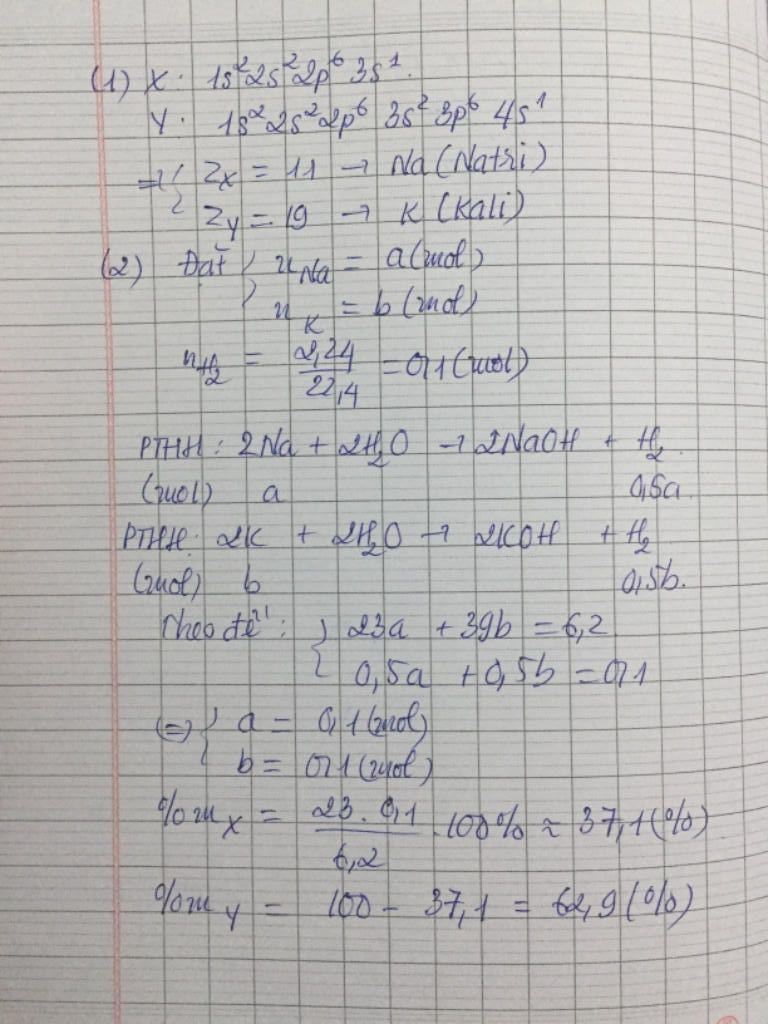 (1) X: 1s²2s²2p⁶3s¹.
Y: 1s²2s²2p⁶ 3s² 3p⁶ 4s¹
=> { Z_X = 11 → Na (Natri)
Z_Y = 19 → K (Kali)
(2) Đặt { n_Na = a (mol)
n_K = b (mol)
n_H₂ = 2,24/22,4 = 0,1 (mol)
PTHH: 2Na + 2H₂O → 2NaOH + H₂
(mol) a 0,5a
PTHH: 2K + 2H₂O → 2KOH + H₂
(mol) b 0,5b.
Theo đề: { 23a + 39b = 6,2
0,5a + 0,5b = 0,1
(=) { a = 0,1 (mol)
b = 0,1 (mol)
%m_X = 23.0,1/6,2 .100% ≈ 37,1 (%)
%m_Y = 100 - 37,1 = 62,9 (%)